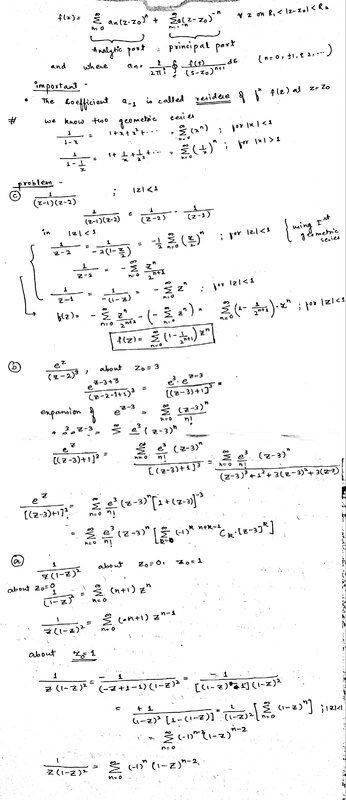 f(x) = Σ_{n=0}^{∞} a_n(z-z_0)^n + Σ_{n=1}^{∞} (z-z_0)^{-n} ∀ z on R_1 < |z-z_0| < R_2
Analytic part principal part
and where a_n = 1/2πi ∮ f(s)/(s-z_0)^{n+1} ds (n = 0, ±1, ±2, ...)
important -
• The Coefficient a_{-1} is called residue of f^n f(z) at z = z_0
# we know two geometric series
1/(1-x) = 1+x+x²+... = Σ_{n=0}^{∞} (x^n) ; for |x| < 1
1/(1-1/x) = 1+1/x+1/x²+... = Σ_{n=0}^{∞} (1/x)^n ; for |x| > 1
problem -
(c) 1/((z-1)(z-2)) ; |z| < 1
1/((z-1)(z-2)) = 1/(z-2) - 1/(z-1)
in |z| < 1
1/(z-2) = 1/(-2(1-z/2)) = -1/2 Σ_{n=0}^{∞} (z/2)^n ; for |z| < 1 { using Ist geometric series
1/(z-2) = -Σ_{n=0}^{∞} z^n/2^{n+1}
1/(z-1) = 1/(-(1-z)) = -Σ_{n=0}^{∞} z^n ; for |z| < 1
f(z) = -Σ_{n=0}^{∞} z^n/2^{n+1} - (-Σ_{n=0}^{∞} z^n) = Σ_{n=0}^{∞} (1 - 1/2^{n+1}) · z^n ; for |z| < 1
f(z) = Σ_{n=0}^{∞} (1 - 1/2^{n+1}) z^n
(b) e^z/(z-2)³ , about z_0 = 3
e^{z-3+3}/(z-2-1+1)³ = e³ · e^{z-3}/[(z-3)+1]³ =
expansion of e^{z-3} = Σ_{n=0}^{∞} (z-3)^n/n!
e³ e^{z-3} = Σ e³/n! (z-3)^n
e^z/[(z-3)+1]³ = Σ_{n=0}^{∞} e³/n! (z-3)^n / [(z-3)+1]³ = Σ_{n=0}^{∞} e³/n! (z-3)^n / (z-3)³+1³+3(z-3)²+3(z-3)
e^z/[(z-3)+1]³ = Σ_{n=0}^{∞} e³/n! (z-3)^n [1+(z-3)]^{-3}
= Σ_{n=0}^{∞} e³/n! (z-3)^n [Σ_{k=0}^{∞} (-1)^k {}^{n+k-1}C_k · [z-3]^k]
(a) 1/(z(1-z)²) about z_0 = 0, z_0 = 1
about z_0 = 0
1/(1-z)² = Σ_{n=0}^{∞} (n+1) z^n
1/(z(1-z)²) = Σ_{n=0}^{∞} (n+1) z^{n-1}
about z_0 = 1
1/(z(1-z)²) = -1/((-z+1-1)(1-z)²) = -1/([(1-z)-1](1-z)²)
= +1/((1-z)² [1-(1-z)]) = 1/(1-z)² [Σ_{n=0}^{∞} (1-z)^n] ; |z| < 1
= Σ_{n=0}^{∞} (-1)^n (1-z)^{n-2}
1/(z(1-z)²) = Σ_{n=0}^{∞} (-1)^n (1-z)^{n-2}